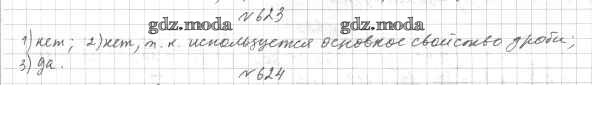 №623
gdz.moda gdz.moda
1) нет; 2) нет, т. к. используется основное свойство дроби;
3) да.
№624